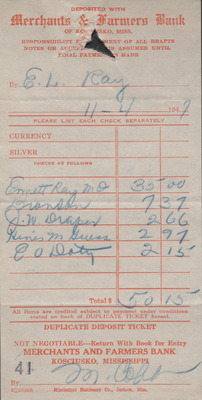 DEPOSITED WITH
Merchants & Farmers Bank
OF KOSCIUSKO, MISS.
RESPONSIBILITY OF ALL DRAFTS
NOTES OR ASSUMED UNTIL
FINAL MADE
By E. L. Ray
11-4 194
PLEASE LIST EACH CHECK SEPARATELY
CURRENCY
SILVER
CHECKS AS FOLLOWS
Emett Ray M D 35 00
7 37
J. W. Draper 2 66
Hines M 2 97
E O Doty 2 15
Total $ 50 15
All items are credited subject to payment under conditions
stated on back of DUPLICATE TICKET hereof.
DUPLICATE DEPOSIT TICKET
NOT NEGOTIABLE—Return With Book for Entry
MERCHANTS AND FARMERS BANK
KOSCIUSKO, MISSISSIPPI
41
By
Mississippi Stationery Co., Jackson, Miss.